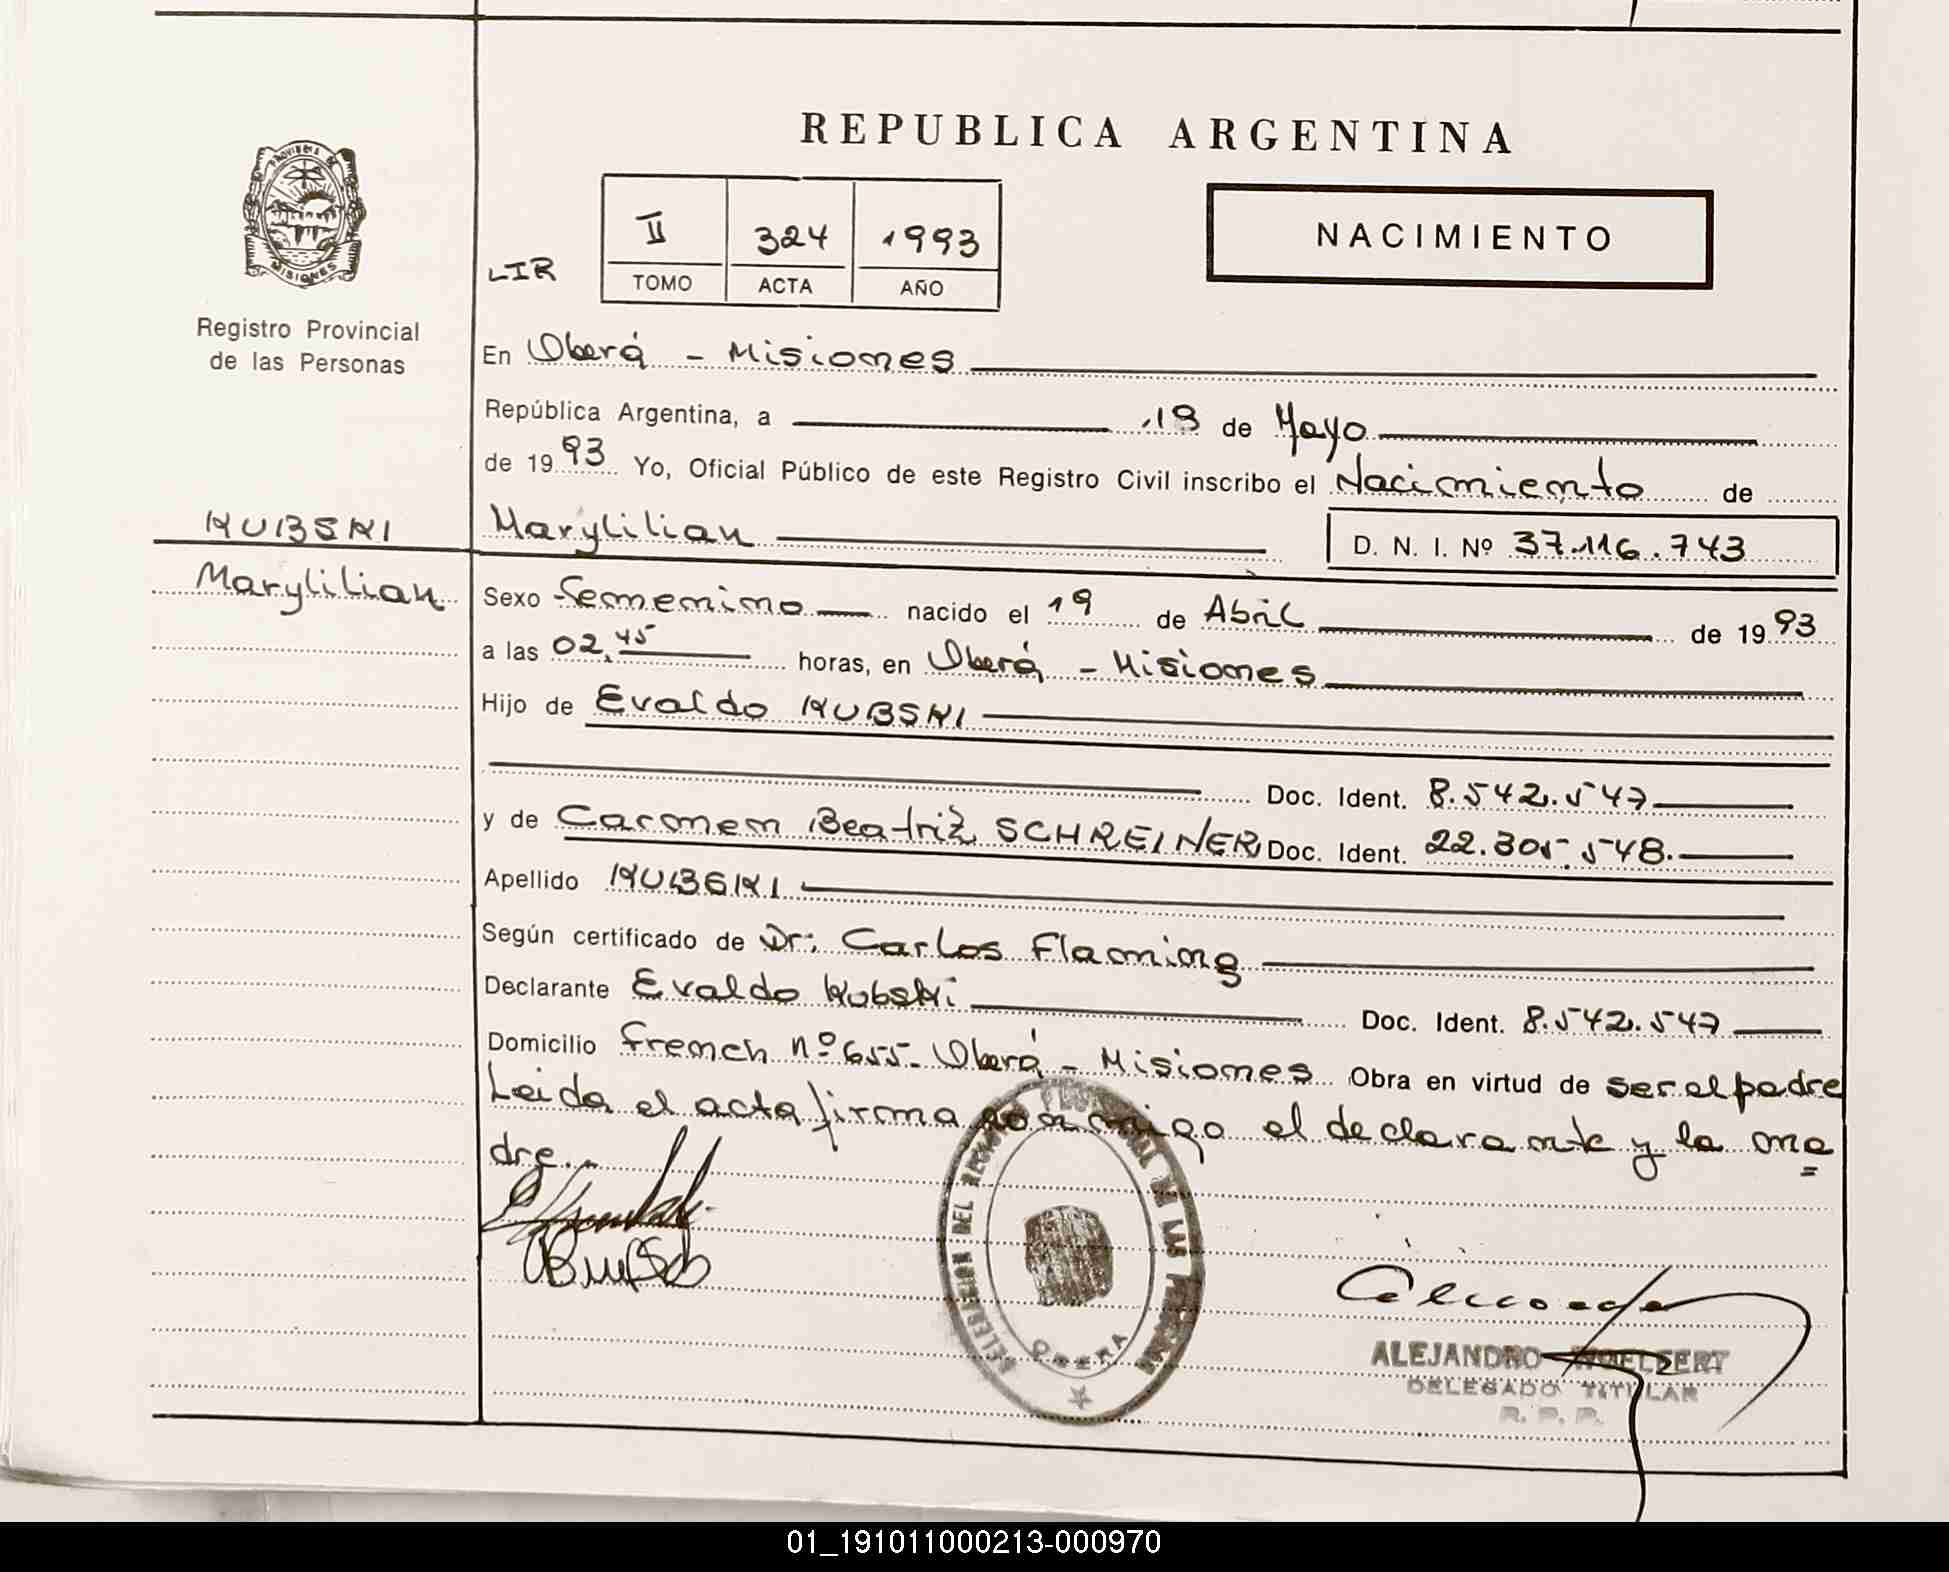 REPUBLICA ARGENTINA
PROVINCIA DE
MISIONES
Registro Provincial
de las Personas
LIR
II 324 1993
TOMO ACTA AÑO
NACIMIENTO
En Oberá - Misiones
República Argentina, a 19 de Mayo
de 1993 Yo, Oficial Público de este Registro Civil inscribo el Nacimiento de
KUBSKI
Marylilian
Marylilian D. N. I. Nº 37.116.743
Sexo Femenino nacido el 19 de Abril de 1993
a las 02,45 horas, en Oberá - Misiones
Hijo de Evaldo KUBSKI
Doc. Ident. 8.542.547
y de Carmen Beatriz SCHREINER Doc. Ident. 22.305.548.
Apellido KUBSKI
Según certificado de Dr: Carlos Flaming
Declarante Evaldo Kubski Doc. Ident. 8.542.547
Domicilio French nº 655- Oberá - Misiones Obra en virtud de ser el padre
Leida el acta firma conmigo el declarante y la ma=
dre.-
DELEGACION DEL REGISTRO PROVINCIAL DE LAS PERSONAS
OBERA
ALEJANDRO
DELEGADO TITULAR
R. P. P.
01_191011000213-000970